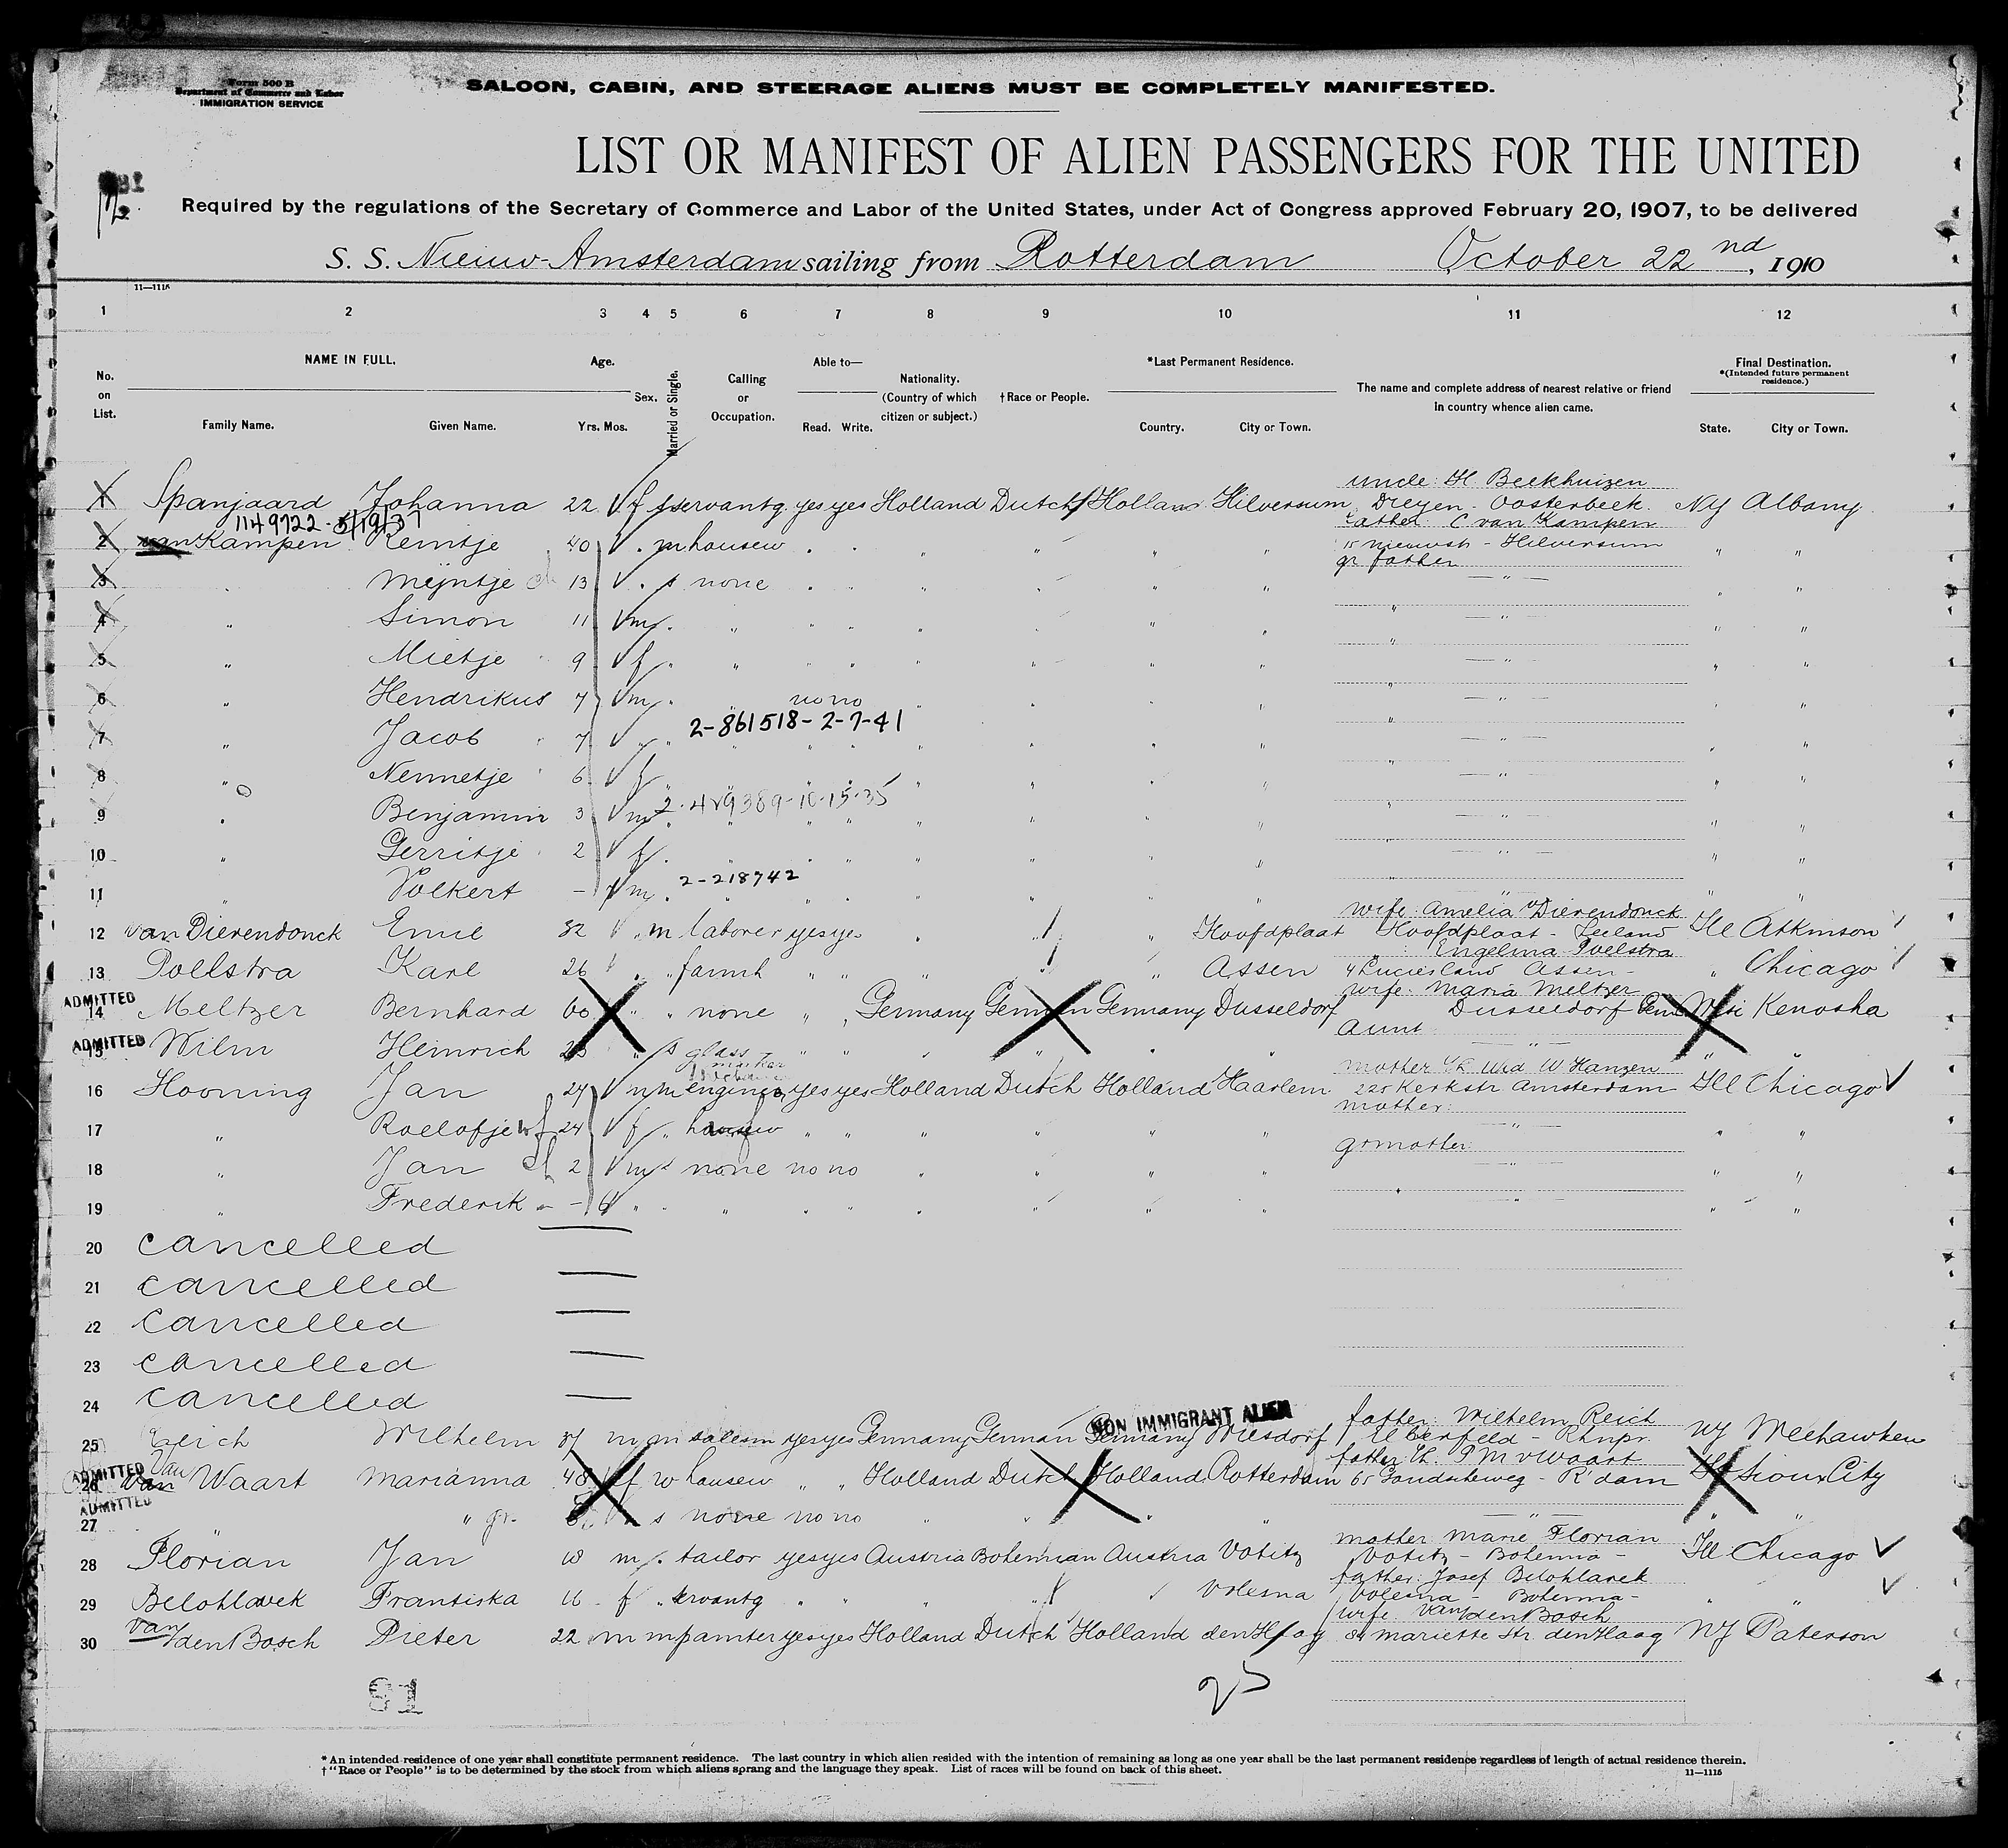 Form 500 B
Department of Commerce and Labor
IMMIGRATION SERVICE
SALOON, CABIN, AND STEERAGE ALIENS MUST BE COMPLETELY MANIFESTED.
LIST OR MANIFEST OF ALIEN PASSENGERS FOR THE UNITED
Required by the regulations of the Secretary of Commerce and Labor of the United States, under Act of Congress approved February 20, 1907, to be delivered
S. S. Nieuw-Amsterdam sailing from Rotterdam October 22nd, 1910
11—1115
1 2 3 4 5 6 7 8 9 10 11 12
No. on List. NAME IN FULL. Family Name. Given Name. Age. Yrs. Mos. Sex. Married or Single. Calling or Occupation. Able to— Read. Write. Nationality. (Country of which citizen or subject.) †Race or People. *Last Permanent Residence. Country. City or Town. The name and complete address of nearest relative or friend in country whence alien came. Final Destination. *(Intended future permanent residence.) State. City or Town.
uncle: H. Beekhuizen
1 Spanjaard Johanna 22 f s servantg yes yes Holland Dutch Holland Hilversum Dreyen - Oosterbeek NY Albany
1149722 - 5/19/37 father C van Kampen
2 van Kampen Reintje 40 " m housew " " " " " " 15 nieuwstr - Hilversum " "
gr father
3 " Meijntje ch 13 " s none " " " " " " " " "
4 " Simon 11 m " " " " " " " " " " "
5 " Mietje 9 f " " " " " " " " " " "
6 " Hendrikus 7 m " " no no " " " " " " "
2-861518-2-7-41
7 " Jacob 7 " " " " " " " " " " " "
8 " Nennetje 6 f " " " " " " " " " " "
2-489389-10-15-35
9 " Benjamin 3 m " " " " " " " " " " "
10 " Gerritje 2 f " " " " " " " " " " "
2-218742
11 " Volkert - m " " " " " " " " " " "
wife: Amelia v Dierendonck
12 van Dierendonck Emie 32 " m laborer yes yes " " " Hoofdplaat Hoofdplaat - Zeeland Ill Atkinson
" Engelina Poelstra
13 Poelstra Karl 26 " " farmh " " " " " Assen Assen - " Chicago
wife: Maria Meltzer
ADMITTED
14 Meltzer Bernhard 60 " " none " " Germany German Germany Dusseldorf Dusseldorf Wisc Kenosha
Aunt
ADMITTED
15 Wilm Heinrich " s glass " " " " " " " " "
mother Wed W Hanzen
16 Hooning Jan 27 m m engineer yes yes Holland Dutch Holland Haarlem 225 Kerkstr Amsterdam Ill Chicago
mother:
17 " Roelofje wf 24 f " housew " " " " " " " " "
grmother
18 " Jan ch 2 m s none no no " " " " " " "
19 " Frederik - " " " " " " " " " " " "
20 cancelled —
21 cancelled —
22 cancelled —
23 cancelled —
24 cancelled —
NON IMMIGRANT ALIEN
father: Wilhelm Reich
25 Reich Wilhelm 37 m m salesm yes yes Germany German Germany Wiesdorf Elberfeld - Rhnpr. NJ Weehawken
father P M v Waart
ADMITTED
26 Van Waart Marianna 48 f w housew " " Holland Dutch Holland Rotterdam R'dam Sioux City
ADMITTED
27 " " s none no no " " " " " " "
mother Marie Florian
28 Florian Jan 18 m s. tailor yes yes Austria Bohemian Austria Votitz Votitz - Bohemia - Ill Chicago
father: Josef Belohlavek
29 Belohlavek Frantiska 16 f " servantg " " " " " Volesna Volesna - Bohemia - " "
wife van den Bosch
30 van den Bosch Pieter 22 m m painter yes yes Holland Dutch Holland den Haag Mariette Str. den Haag NJ Paterson
81
25
*An intended residence of one year shall constitute permanent residence. The last country in which alien resided with the intention of remaining as long as one year shall be the last permanent residence regardless of length of actual residence therein.
†"Race or People" is to be determined by the stock from which aliens sprang and the language they speak. List of races will be found on back of this sheet. 11—1115